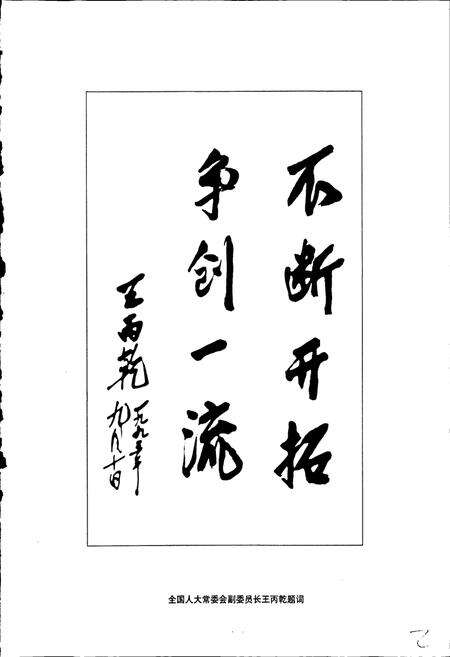 不断开拓
争创一流
王丙乾
一九九五年
九月十日
全国人大常委会副委员长王丙乾题词